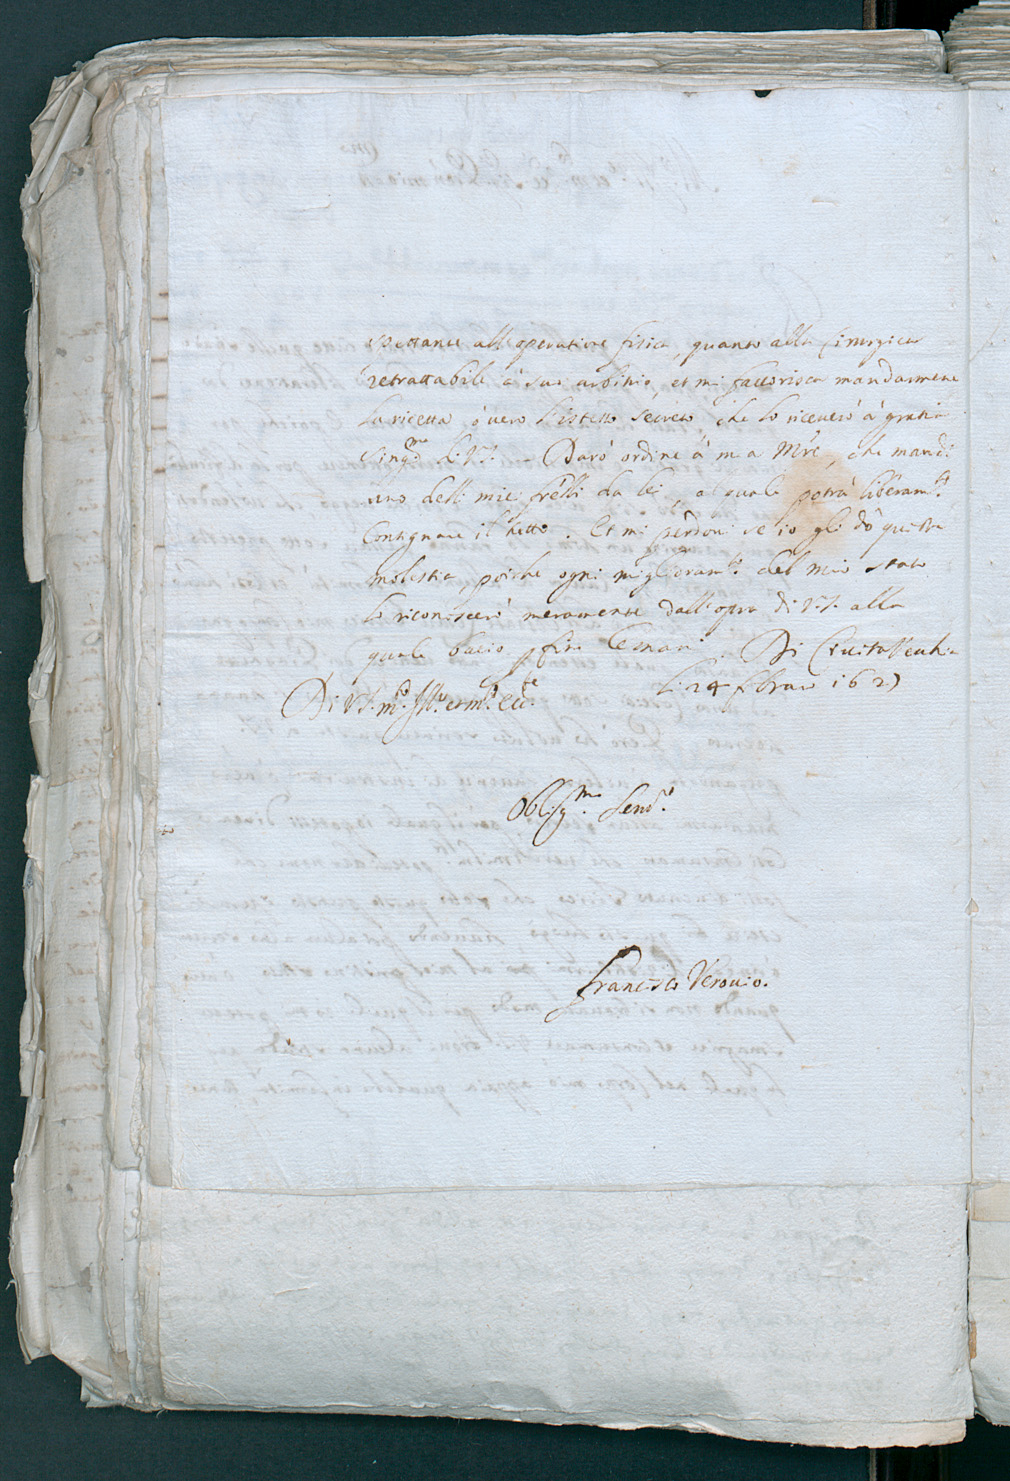 spettante all'operatione fisica, quanto alla Cirurgica
retrattabile à suo arbitrio, et mi favorisca mandarmene
la ricetta ò vero l'istesso secreto che lo riceverò à gratia
Sing.ma di V.S. – Darò ordine à m.a M.re, che mandi
uno delli miei frelli da lei, al quale potrà liberam.te
Consignare il tutto. Et mi perdoni se io gli dò questa
molestia, poiche ogni miglioram.to del mio stato
lo riconoscerò meramente dall'opra di V.S. alla
quale bacio p fine le mani. Di Civitavechia
li 24 febraro 162
Di V.S. m.to Ill.re et m.to Ecc.te
Oblig.mo Serv.re
Francesco Verovio.